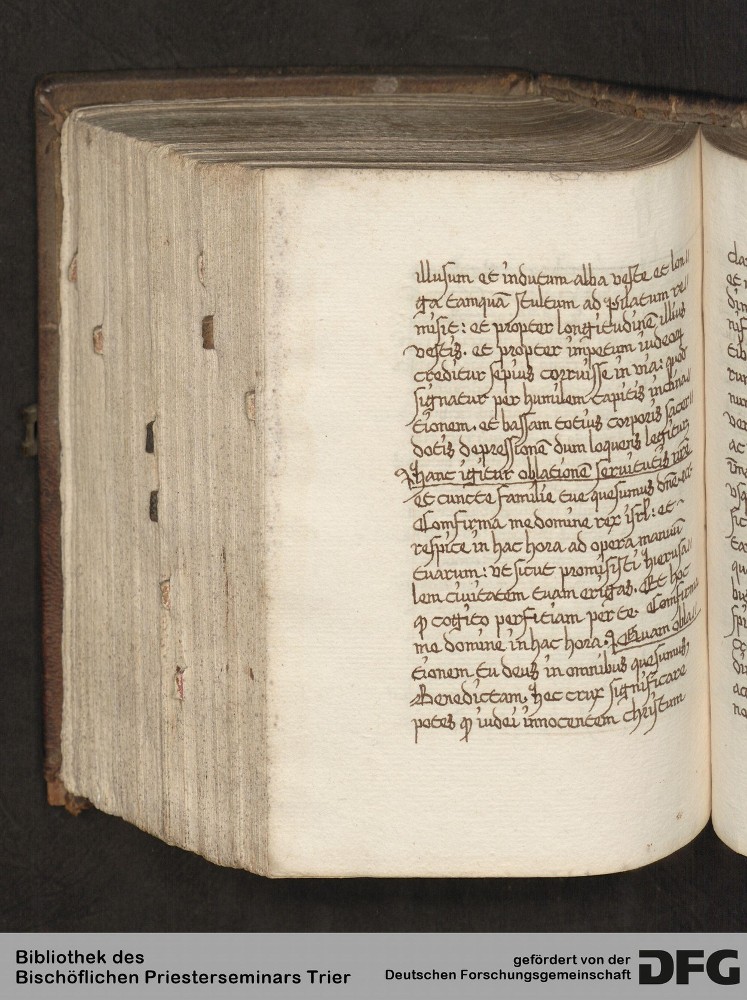 illusum et indutum alba veste et lon//
ga tamquā stultum ad pilatum re//
misit: et propter longitudinē illius
vestis. et propter impetum iudeoꝝ
creditur sepius corruisse in via: quod
signatur per humilem capitis inclina//
tionem. et bassam totius corporis sacer//
dotis depressionē dum loquens legitur
hanc igitur oblationē servitutis nr̄e
et cuncte familie tue quesumus dn̄e.
Comfirma me domine rex isrl̄: et
respice in hac hora ad opera manuū
tuarum: ut sicut promisisti hierusa//
lem civitatem tuam erigas. Et hoc
ꝙ cogito perfitiam per te. Comfirma
me domine in hac hora. Quam obla//
tionem tu deus in omnibus quesumus,
Benedictam. hec crux significare
potes ꝙ iudei innocentem christum
Bibliothek des
Bischöflichen Priesterseminars Trier
gefördert von der
Deutschen Forschungsgemeinschaft DFG